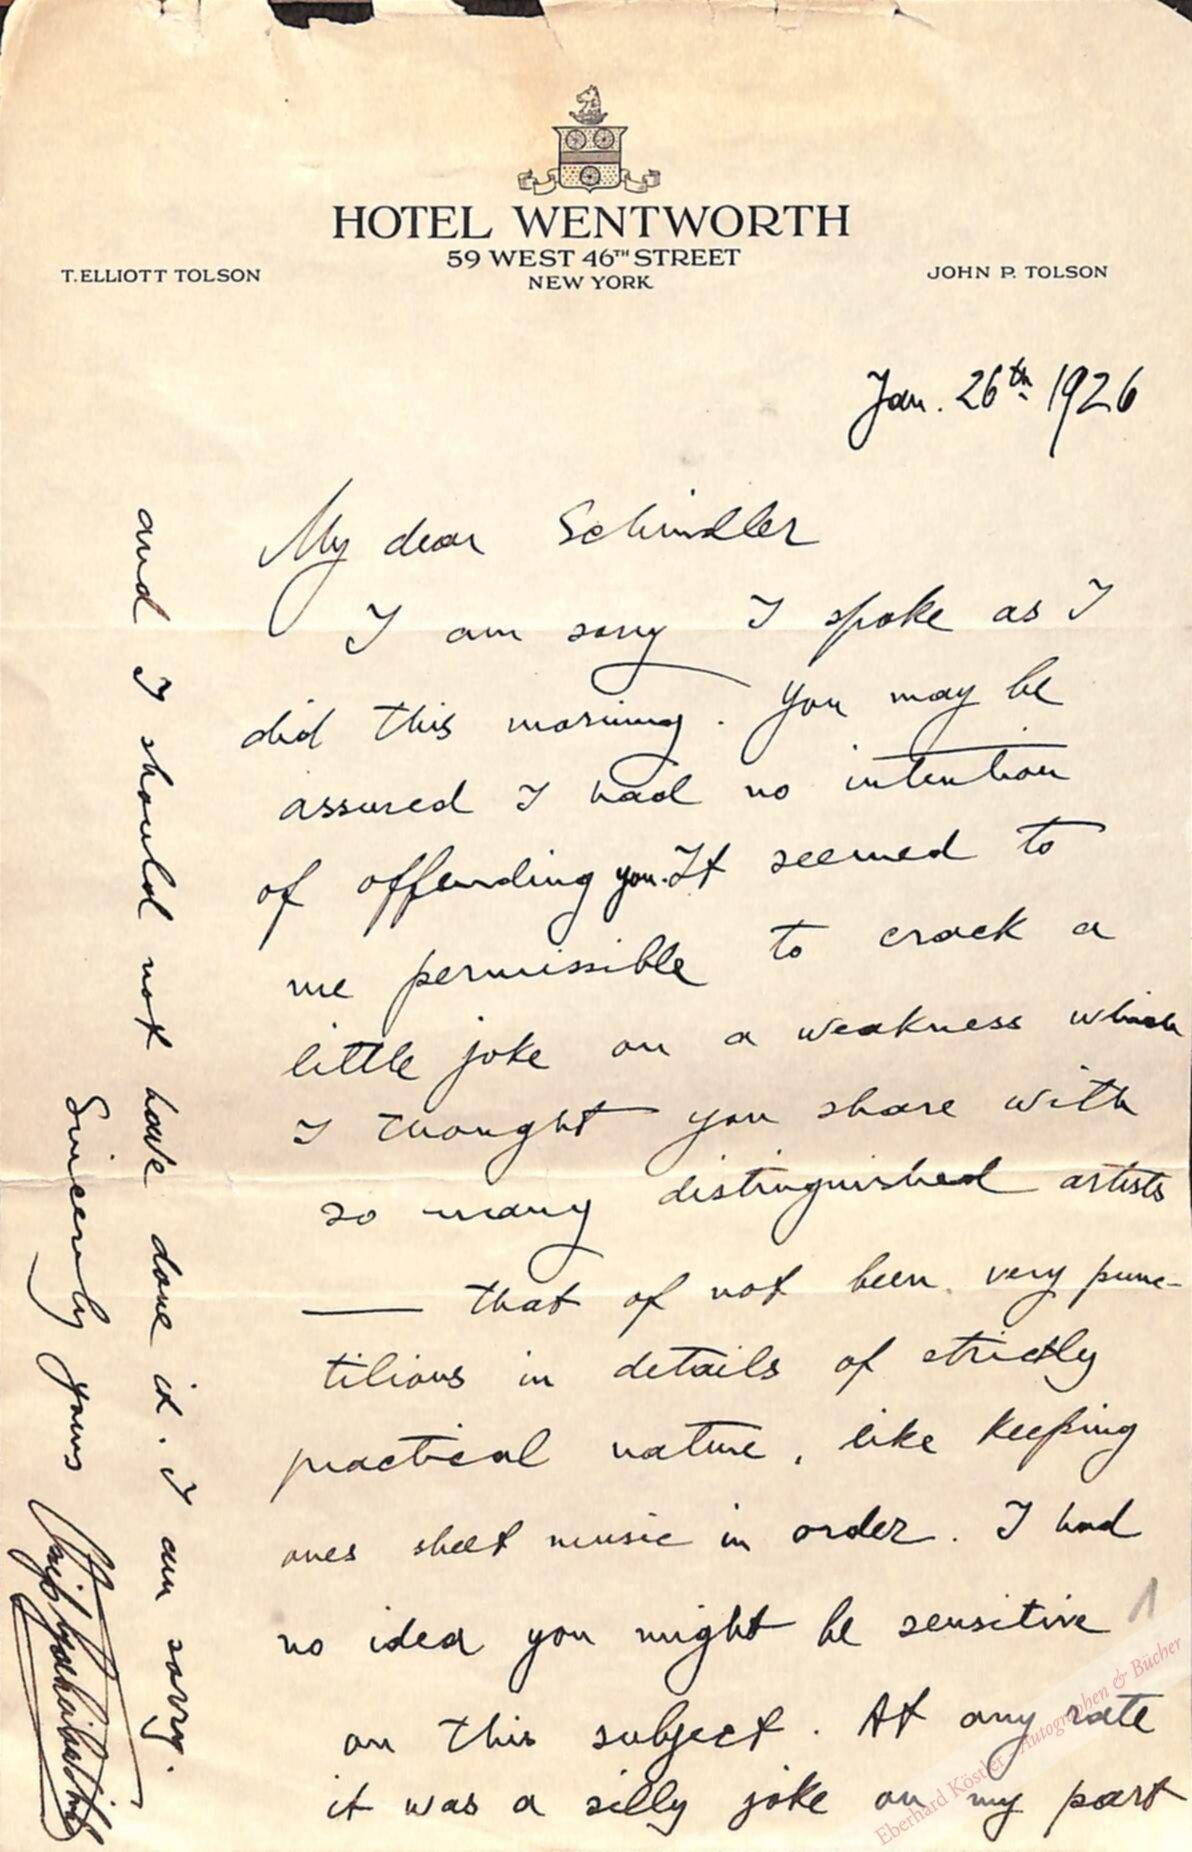 HOTEL WENTWORTH
59 WEST 46TH STREET
NEW YORK
T. ELLIOTT TOLSON
JOHN P. TOLSON
Jan. 26th 1926
My dear Schindler
I am sorry I spoke as I
did this morning. You may be
assured I had no intention
of offending you. It seemed to
me permissible to crack a
little joke on a weakness which
I thought you share with
so many distinguished artists
— that of not been very punc-
tilious in details of strictly
practical nature, like keeping
ones sheet music in order. I had
no idea you might be sensitive
on this subject. At any rate
it was a silly joke on my part
and I should not have done it. I am sorry.
Sincerely yours
1
Eberhard Köstler Autographen & Bücher